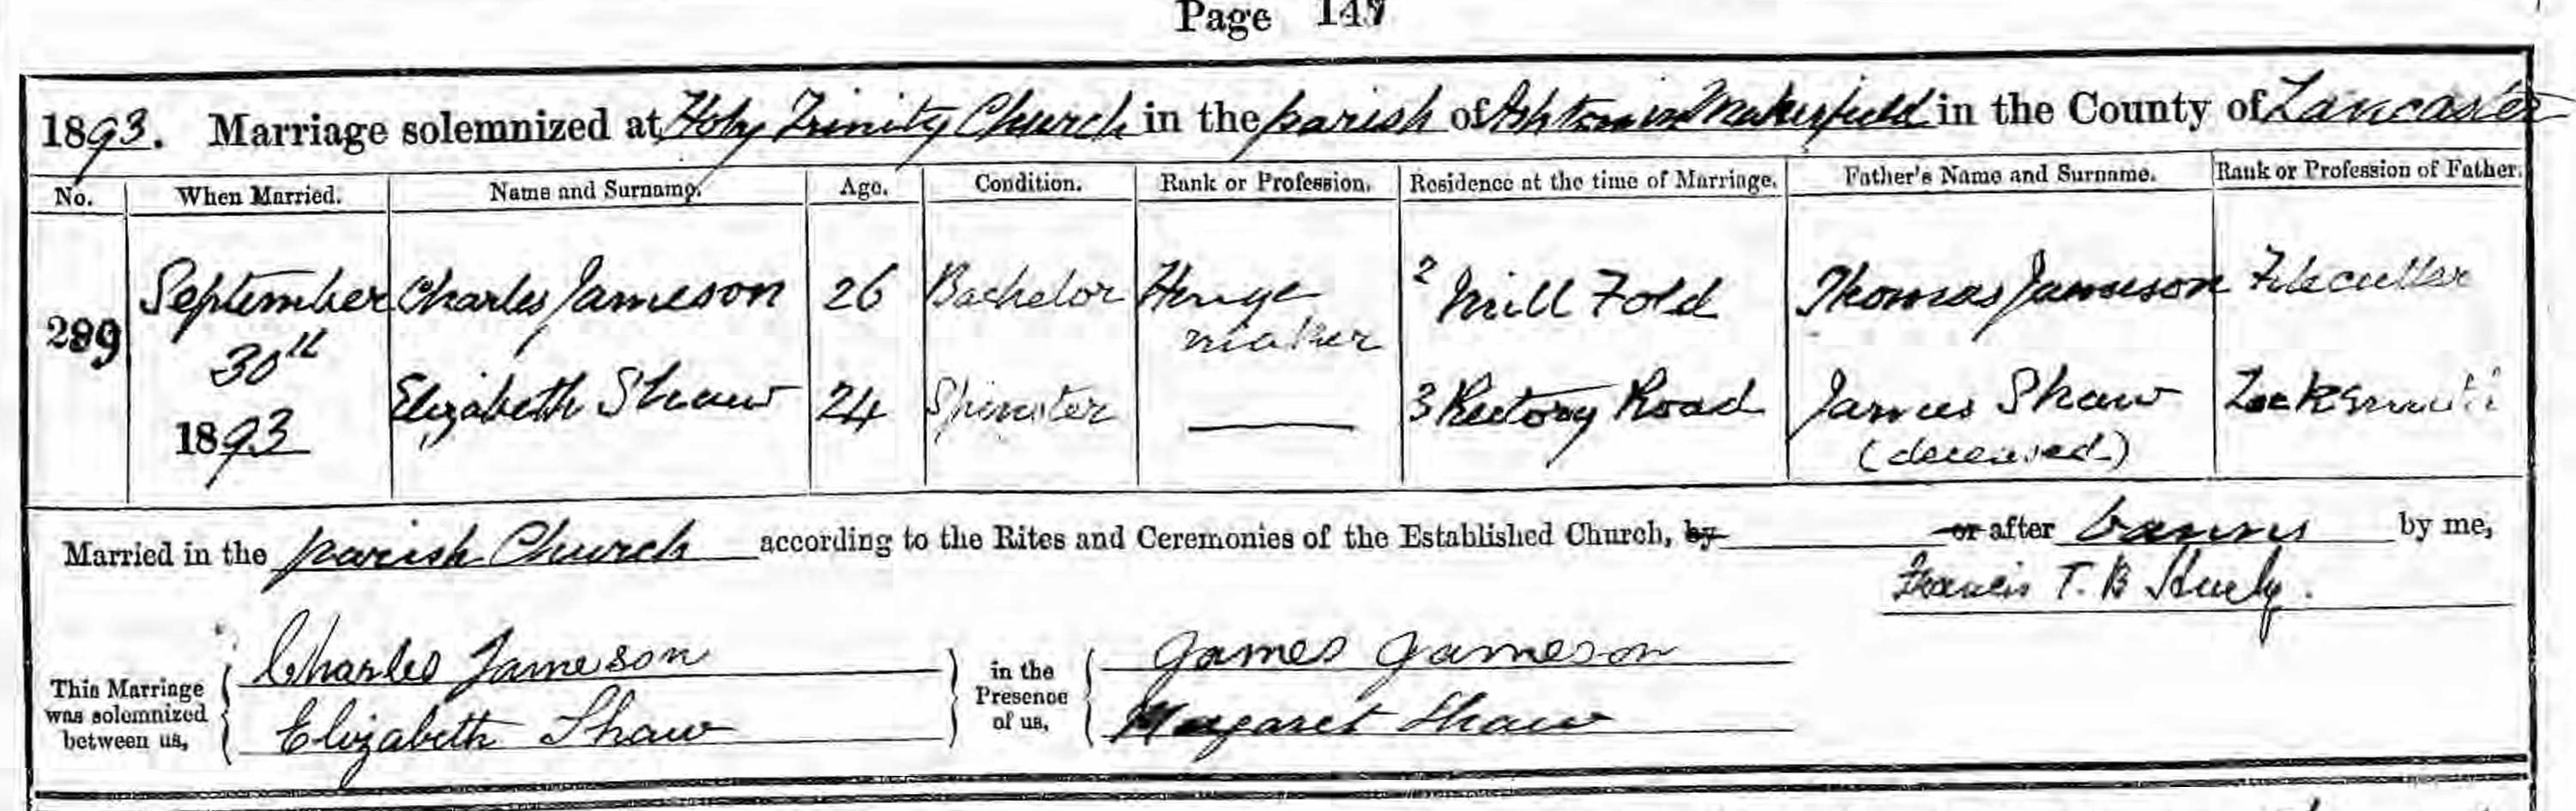 Page 147
1893. Marriage solemnized at Holy Trinity Church in the parish of Ashton in Makerfield in the County of Lancaster
No. When Married. Name and Surname. Age. Condition. Rank or Profession. Residence at the time of Marriage. Father's Name and Surname. Rank or Profession of Father.
299 September 30th 1893 Charles Jameson 26 Bachelor Hinge maker 2 Mill Fold Thomas Jameson Filecutter
Elizabeth Shaw 24 Spinster 3 Rectory Road James Shaw (deceased) Locksmith
Married in the parish Church according to the Rites and Ceremonies of the Established Church, by or after banns by me,
Francis T. B
This Marriage was solemnized between us, Charles Jameson in the Presence of us, James Jameson
Elizabeth Shaw Margaret Shaw